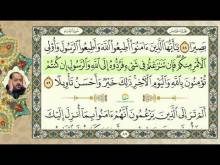 بَصِيرًا ٥٨ يَٰٓأَيُّهَا ٱلَّذِينَ ءَامَنُوٓا۟ أَطِيعُوا۟ ٱللَّهَ وَأَطِيعُوا۟ ٱلرَّسُولَ وَأُو۟لِى
ٱلْأَمْرِ مِنكُمْ فَإِن تَنَٰزَعْتُمْ فِى شَىْءٍ فَرُدُّوهُ إِلَى ٱللَّهِ وَٱلرَّسُولِ إِن كُنتُمْ
تُؤْمِنُونَ بِٱللَّهِ وَٱلْيَوْمِ ٱلْءَاخِرِ ذَٰلِكَ خَيْرٌ وَأَحْسَنُ تَأْوِيلًا ٥٩
أَلَمْ تَرَ إِلَى ٱلَّذِينَ يَزْعُمُونَ أَنَّهُمْ ءَامَنُوا۟ بِمَآ أُنزِلَ إِلَيْكَ